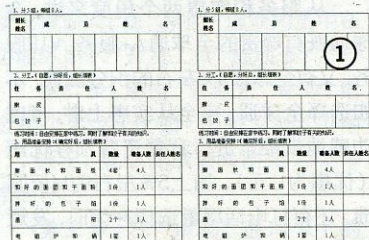 1、分5组，每组8人。
组长姓名 成 员 姓 名
2、分工。(自愿，分好后，组长填表)
任 务 责 任 人 姓 名
擀 皮
包 饺 子
练习时间：自由安排在家中练习。同时了解和饺子有关的知识。
3、用品准备安排(确定好后，组长填表)
用 具 数量 准备人数 责任人姓名
擀 面 杖 和 面 板 4套 4人
和 好 的 面 团 和 干 面 粉 1份 1人
拌 好 的 包 子 馅 1份 1人
盖 帘 2个 1人
电 磁 炉 和 锅 1套 1人
1、分5组，每组8人。
组长姓名 成 员 姓 名
①
2、分工。(自愿，分好后，组长填表)
任 务 责 任 人 姓 名
擀 皮
包 饺 子
练习时间：自由安排在家中练习。同时了解和饺子有关的知识。
3、用品准备安排(确定好后，组长填表)
用 具 数量 准备人数 责任人姓名
擀 面 杖 和 面 板 4套 4人
和 好 的 面 团 和 干 面 粉 1份 1人
拌 好 的 包 子 馅 1份 1人
盖 帘 2个 1人
电 磁 炉 和 锅 1套 1人